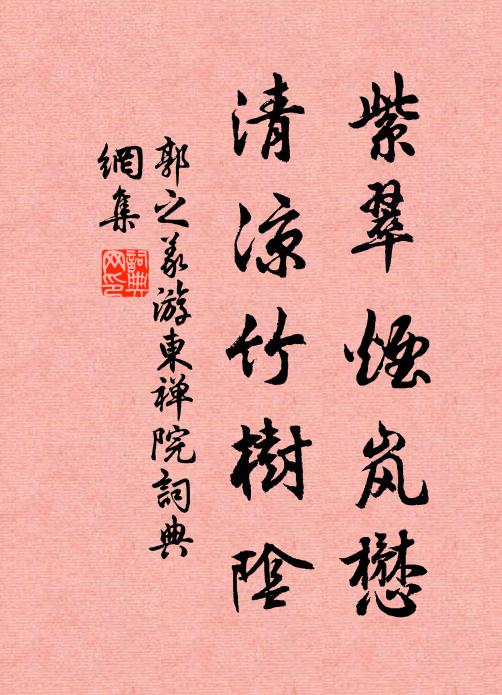 紫翠煙岚懋
清凉竹樹陰
郭之义游東禅院詞典
網集
詞典网印